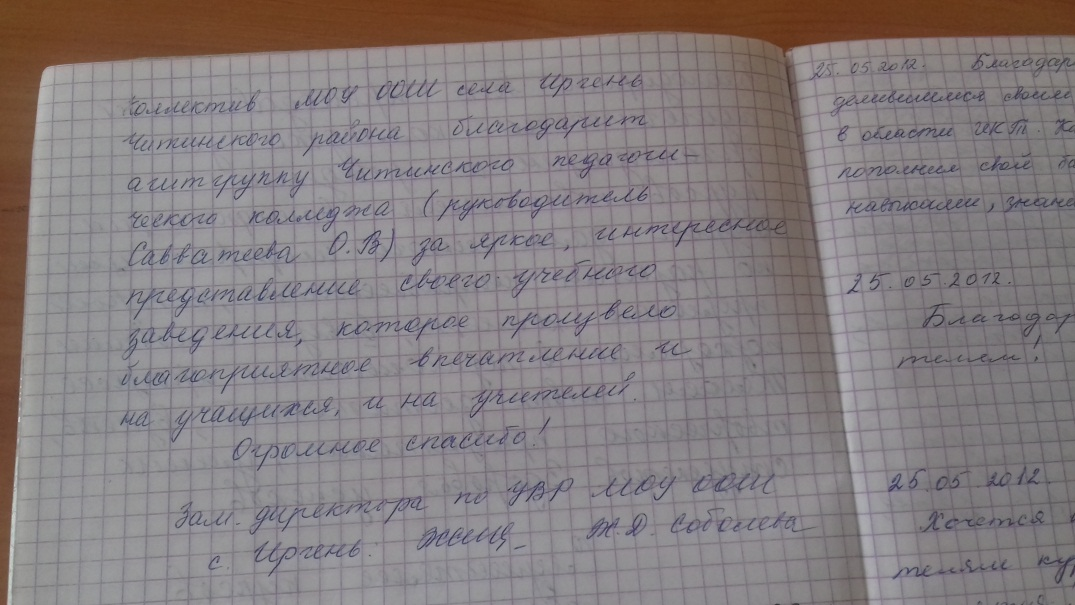 Коллектив МОУ ООШ села Иргень
Читинского района благодарит
агитгруппу Читинского педагоги-
ческого колледжа (руководитель
Савватеева О.В) за яркое, интересное
представление своего учебного
заведения, которое произвело
благоприятное впечатление и
на учащихся, и на учителей.
Огромное спасибо!
Зам. директора по УВР МОУ ООШ
с. Иргень. Ж.Д. Соболева
25.05.2012. Благодар
делившимся своим
в области ИКТ.
пополним свой
навыками,
25.05.2012.
Благодар
телем!
25.05.2012.
Хочется
телям